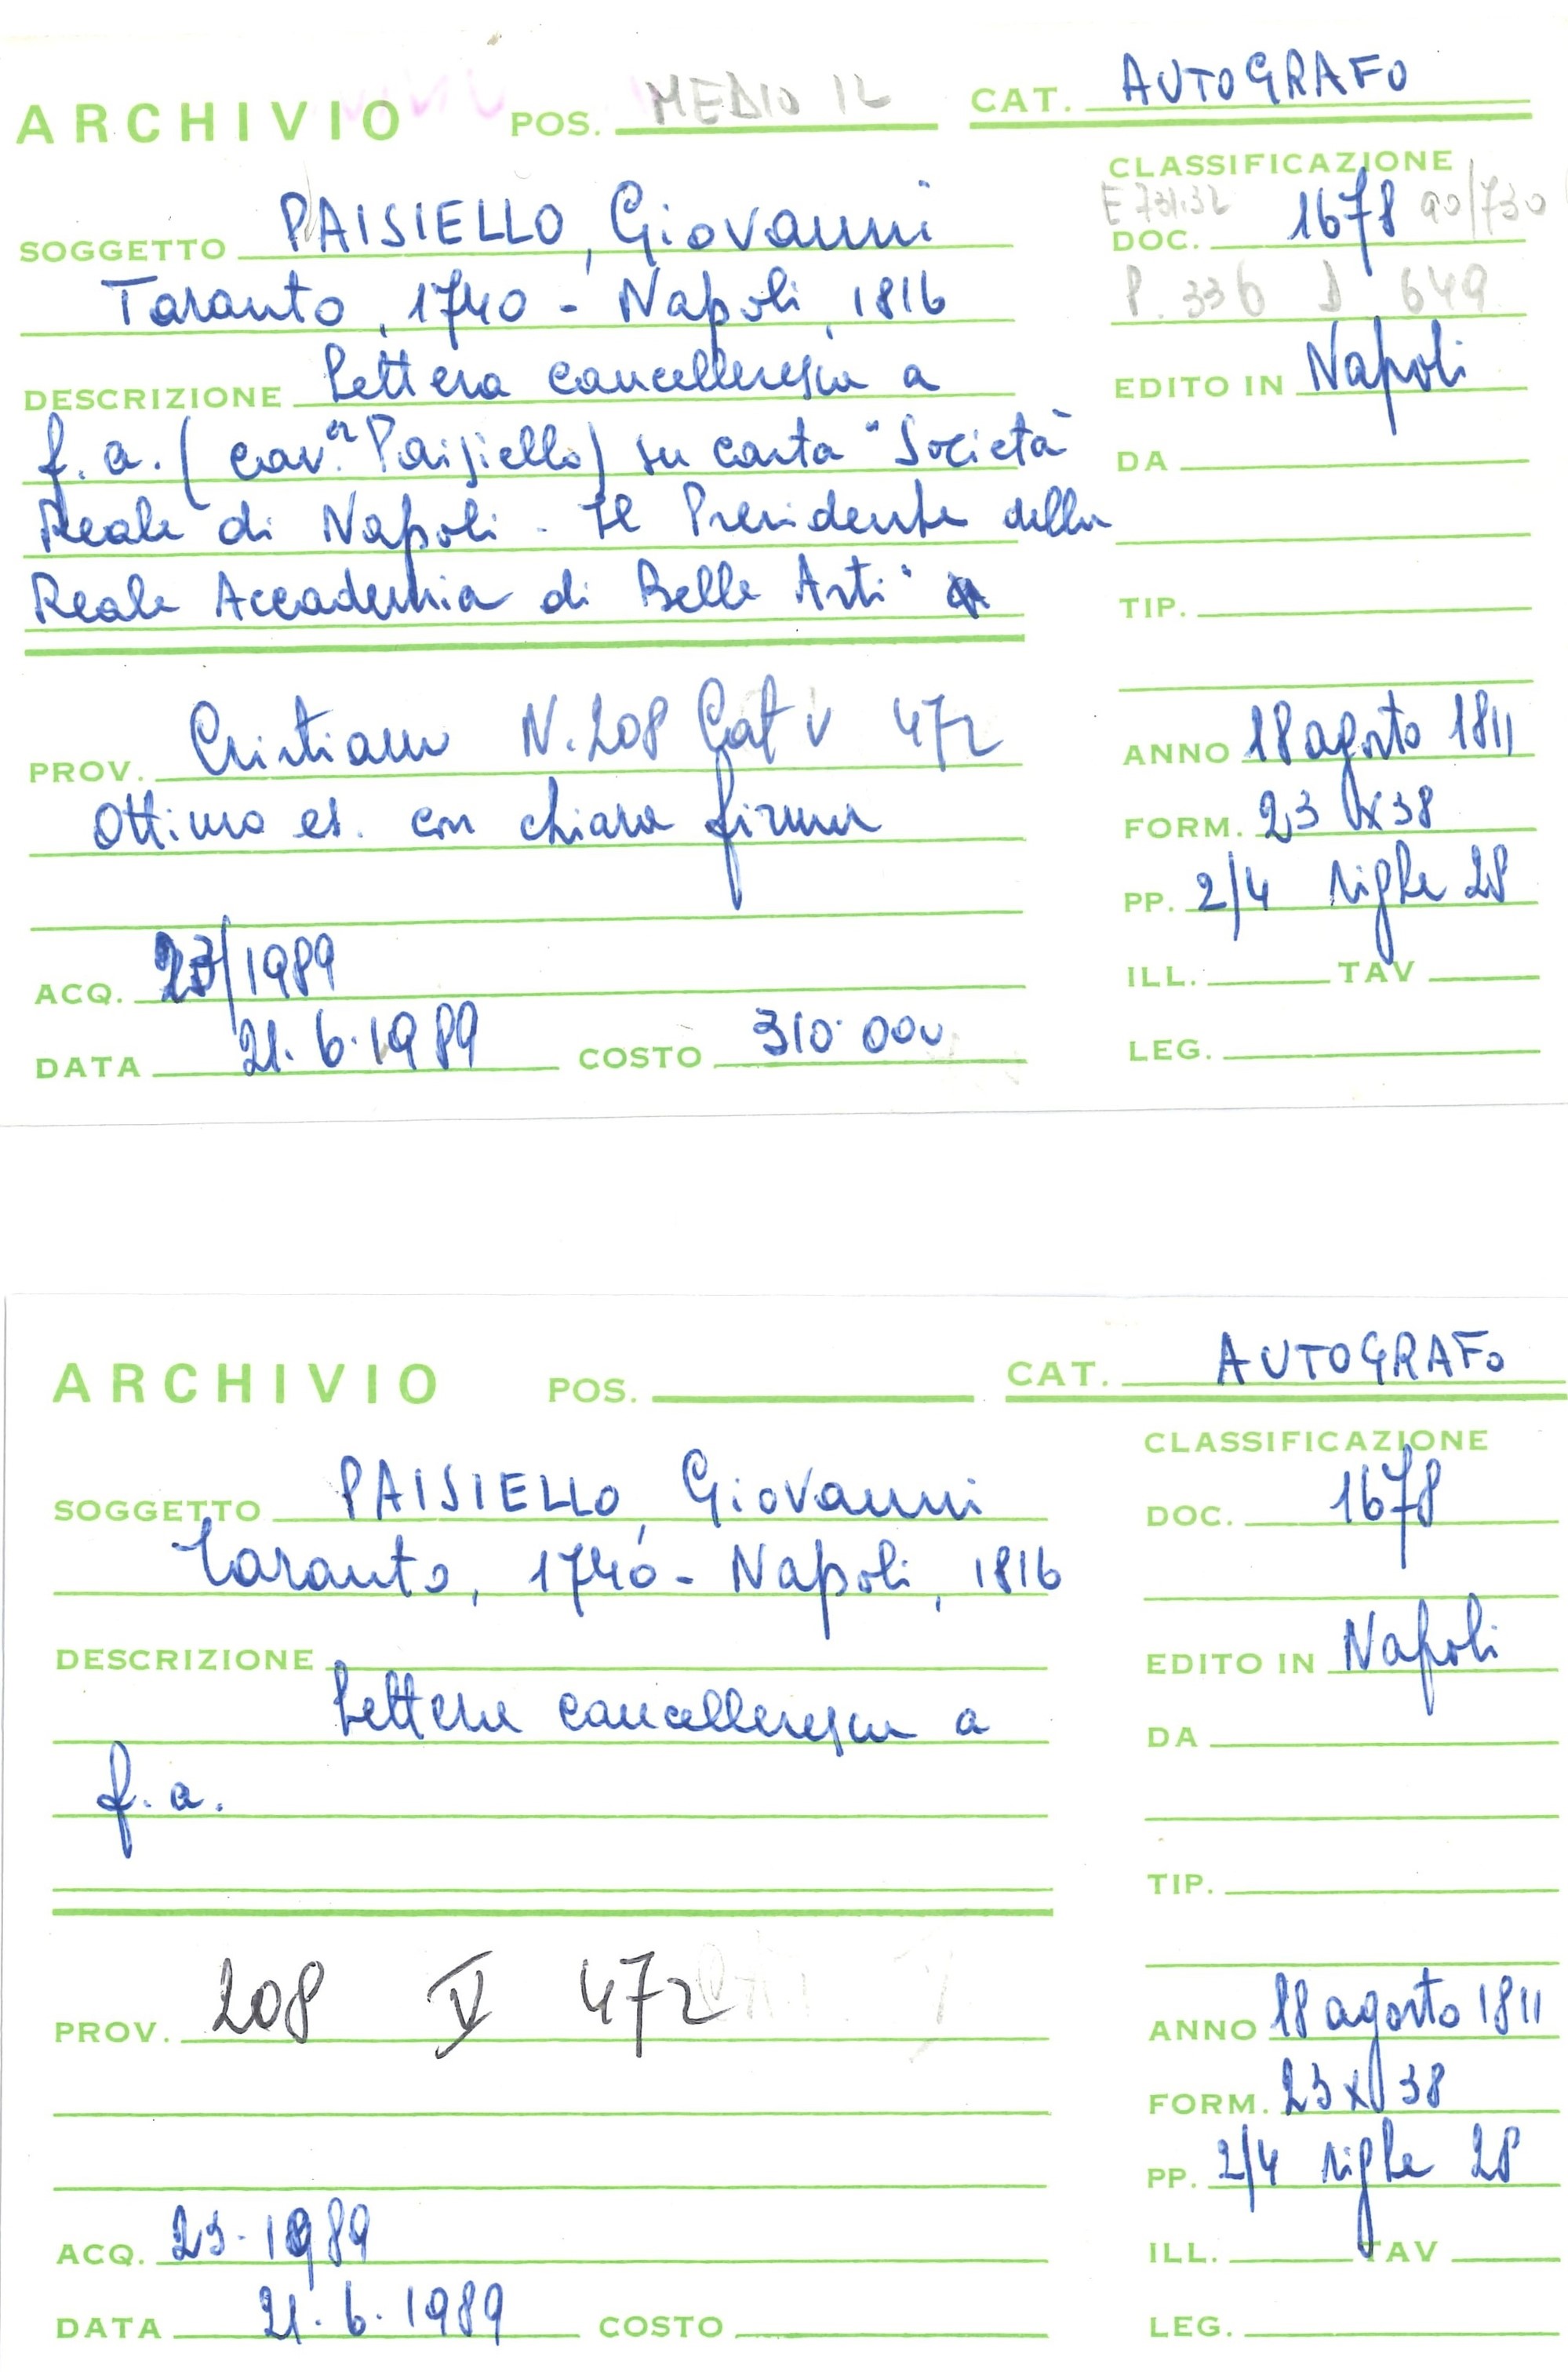 ARCHIVIO POS. MEDIO IL CAT. AUTOGRAFO
CLASSIFICAZIONE
E 731.32
SOGGETTO PAISIELLO, Giovanni
DOC. 1678 90/730
Taranto, 1740 - Napoli, 1816
P. 336 D 649
DESCRIZIONE Lettera cancelleresca a
EDITO IN Napoli
f. a. (cav.er Paisiello) su carta "Società
DA
Reale di Napoli - Il Presidente della
Reale Accademia di Belle Arti"
TIP.
PROV. Cristiano N. 208 Cat V 472
ANNO 18 agosto 1811
Ottimo es. con chiara firma
FORM. 23 x 38
PP. 2/4 righe 28
ACQ. 23/1989
ILL. TAV
DATA 21.6.1989 COSTO 310.000
LEG.
ARCHIVIO POS. CAT. AUTOGRAFO
CLASSIFICAZIONE
SOGGETTO PAISIELLO, Giovanni
DOC. 1678
Taranto, 1740 - Napoli, 1816
DESCRIZIONE
EDITO IN Napoli
Lettera cancelleresca a
DA
f. a.
TIP.
PROV. 208 V 472
ANNO 18 agosto 1811
FORM. 23 x 38
PP. 2/4 righe 28
ACQ. 23-1989
ILL. TAV
DATA 21.6.1989 COSTO
LEG.